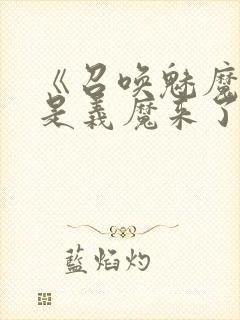 《召唤魅魔
是義魔来了
藍焰灼